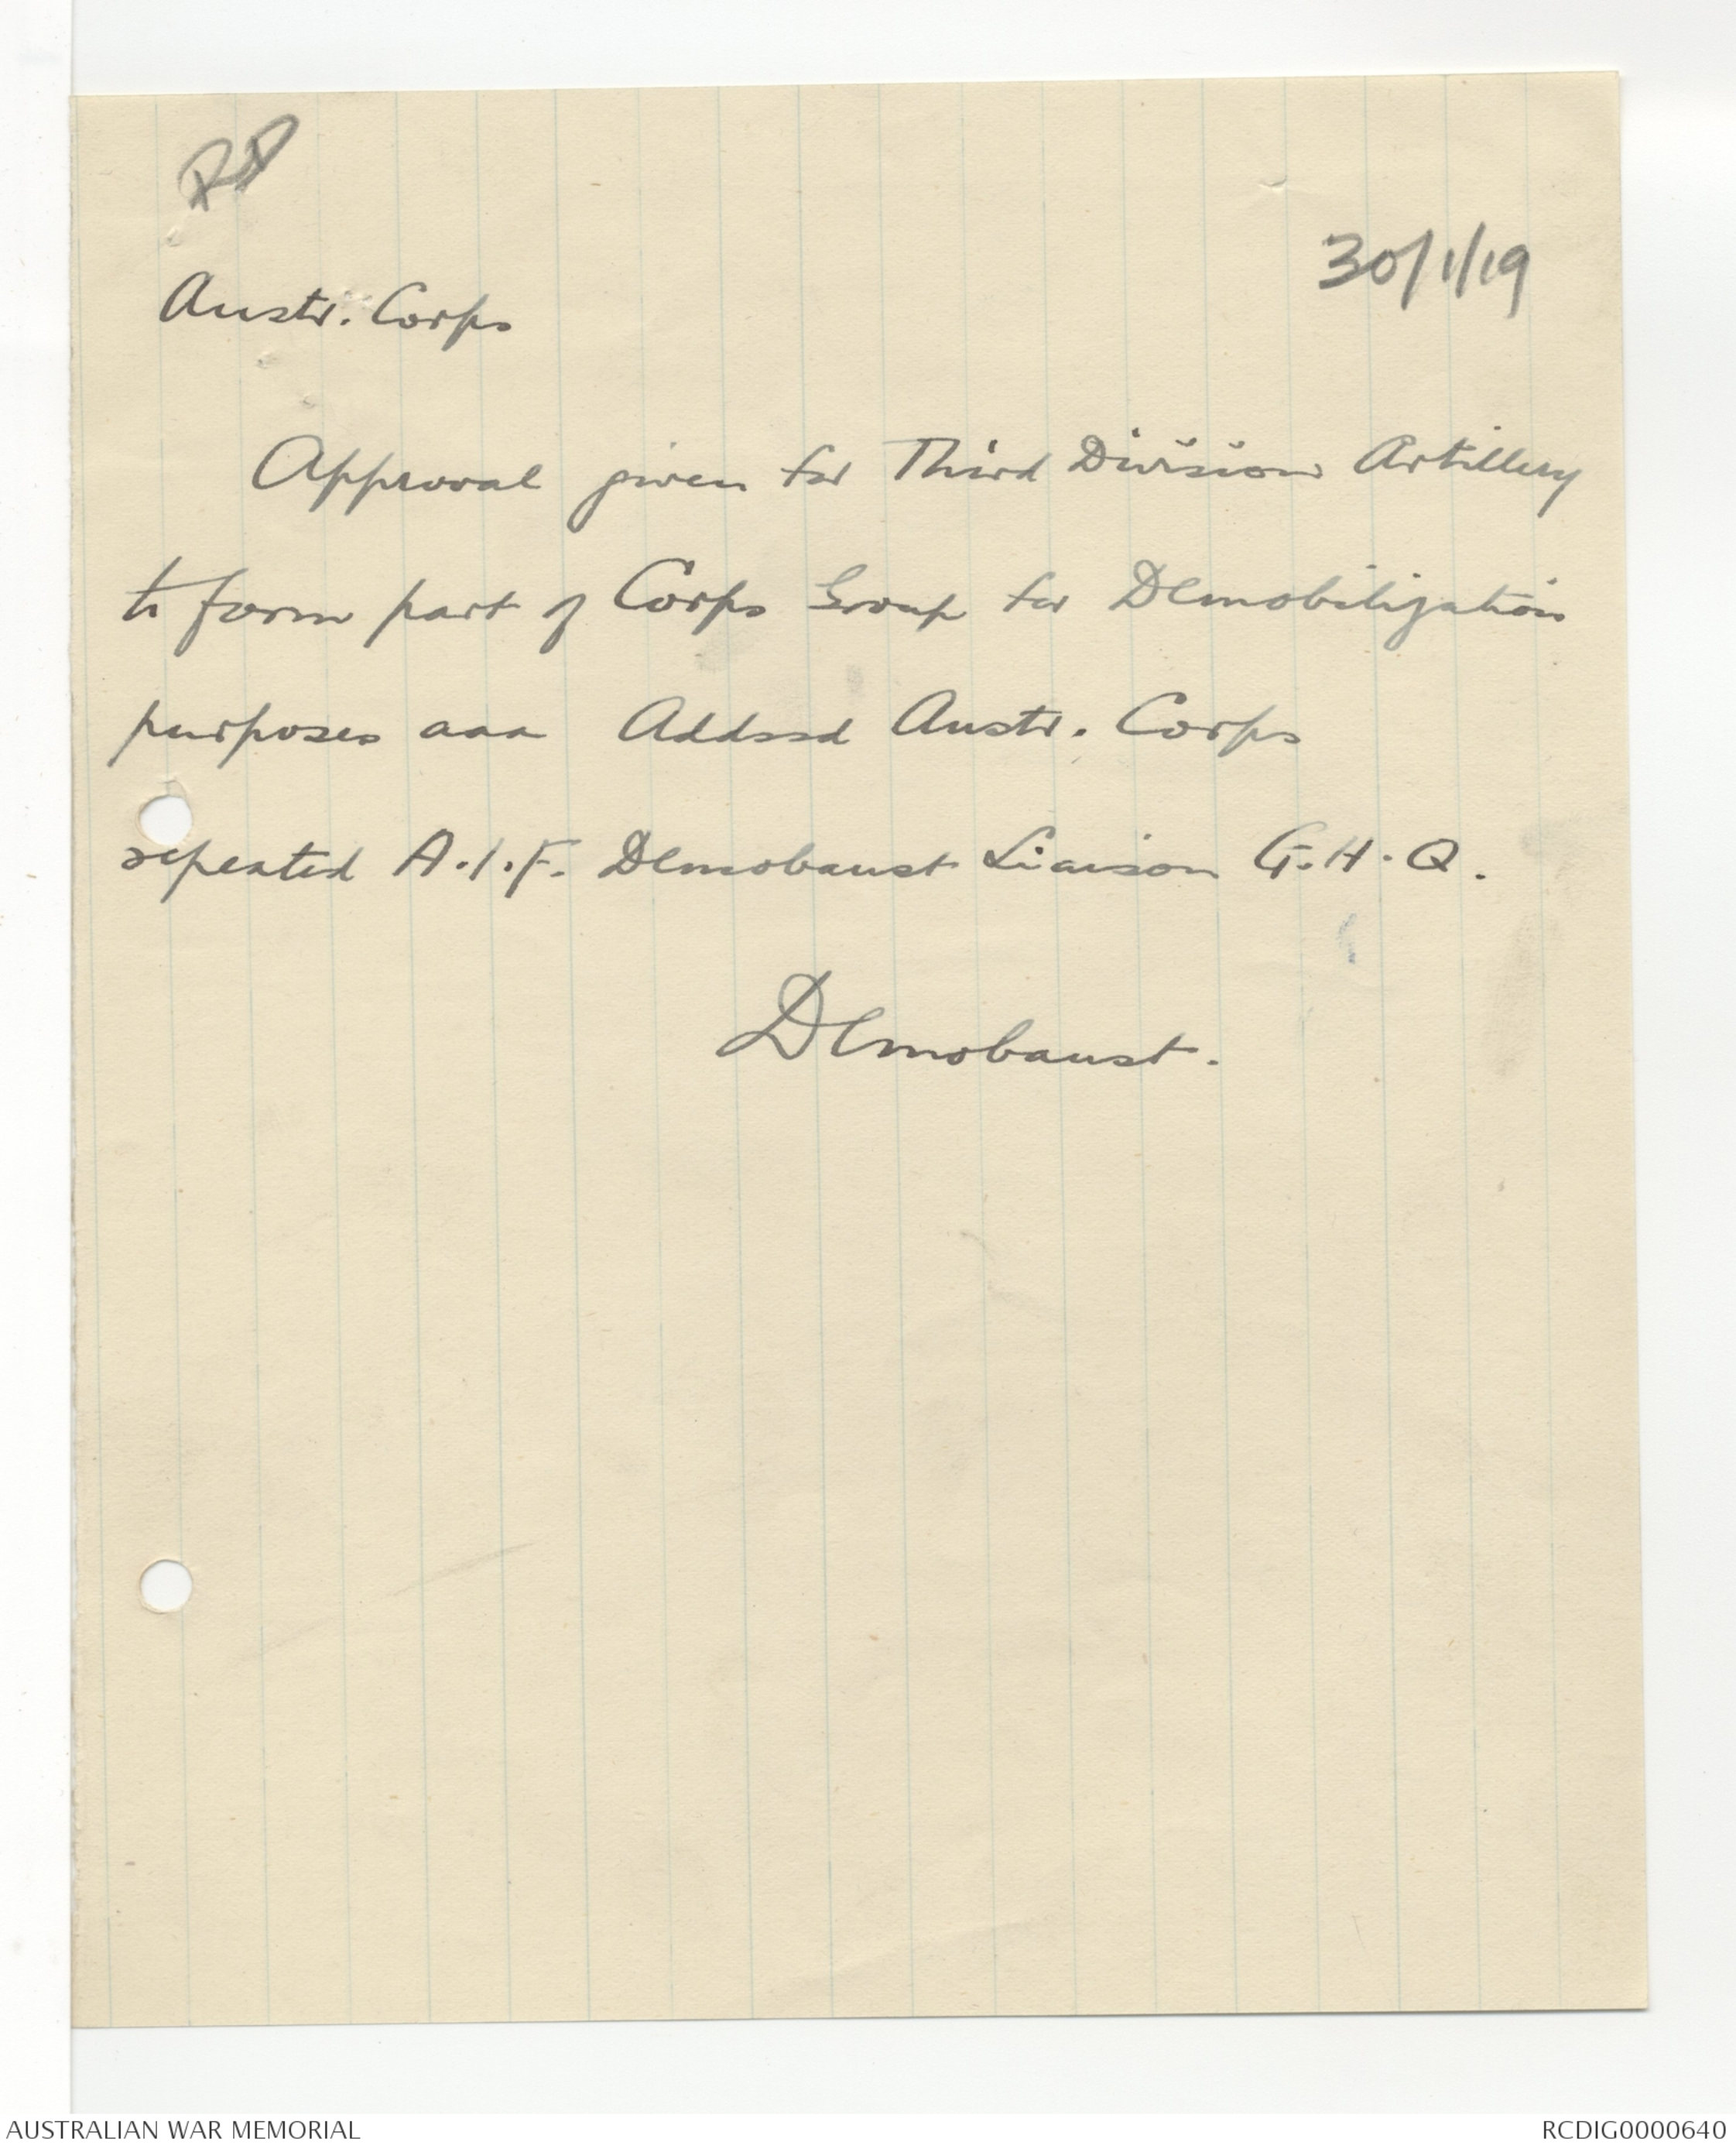 30/1/19
Austr. Corps
Approval given for Third Division Artillery
to form part of Corps Group for Demobilization
purposes aaa Addssd Austr. Corps
repeated A.I.F. Demobaust Liaison G.H.Q.
Demobaust.
AUSTRALIAN WAR MEMORIAL
RCDIG0000640